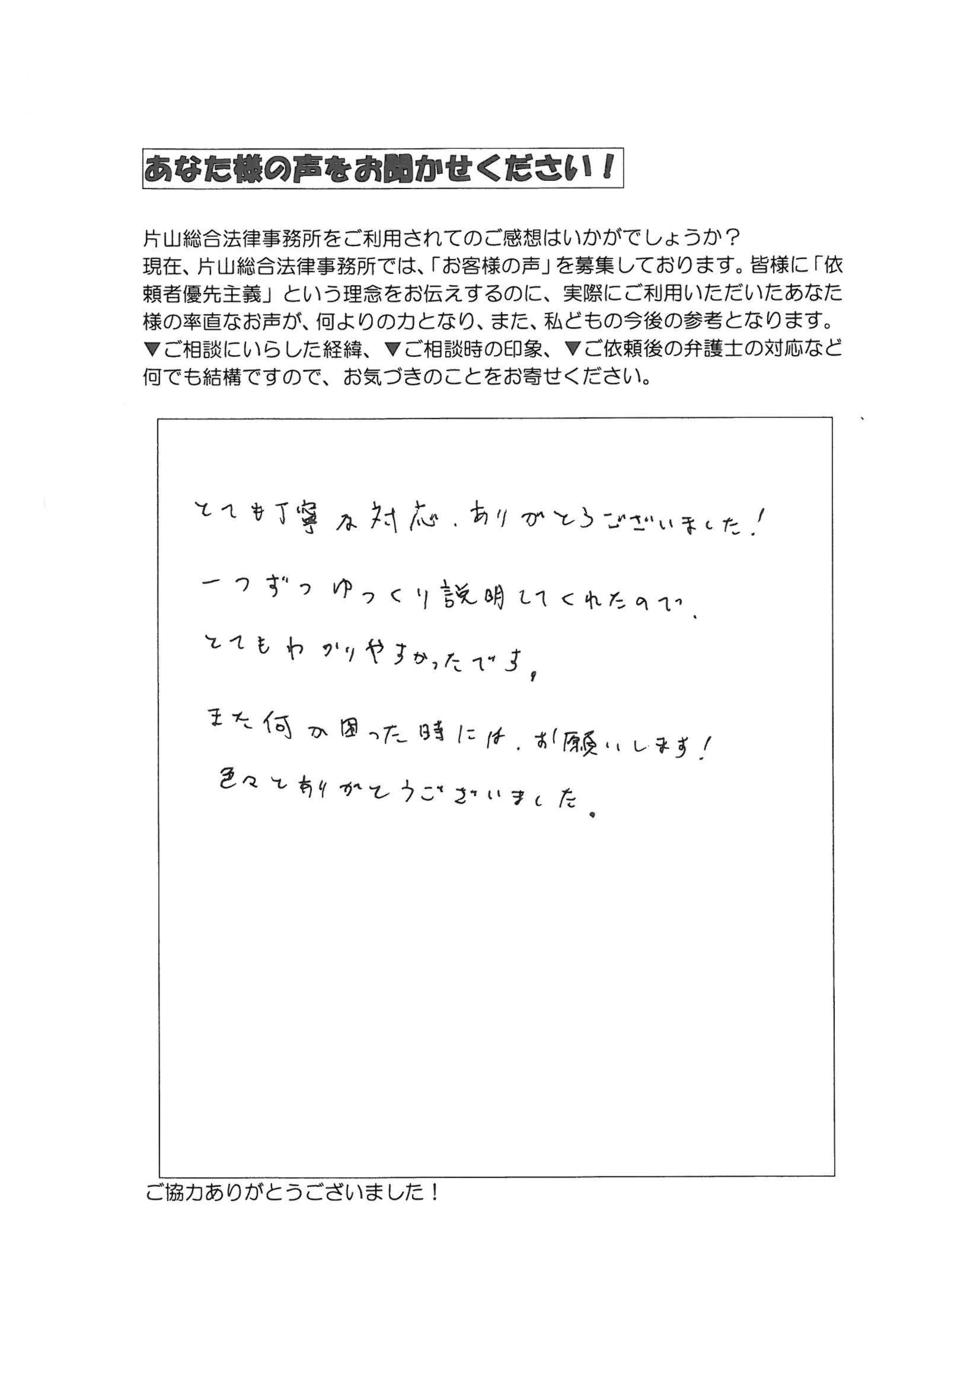 あなた様の声をお聞かせください！
片山総合法律事務所をご利用されてのご感想はいかがでしょうか？
現在、片山総合法律事務所では、「お客様の声」を募集しております。皆様に「依
頼者優先主義」という理念をお伝えするのに、実際にご利用いただいたあなた
様の率直なお声が、何よりの力となり、また、私どもの今後の参考となります。
▼ご相談にいらした経緯、▼ご相談時の印象、▼ご依頼後の弁護士の対応など
何でも結構ですので、お気づきのことをお寄せください。
とても丁寧な対応、ありがとうございました！
一つずつゆっくり説明してくれたので、
とてもわかりやすかったです。
また何か困った時には、お願いします！
色々とありがとうございました。
ご協力ありがとうございました！